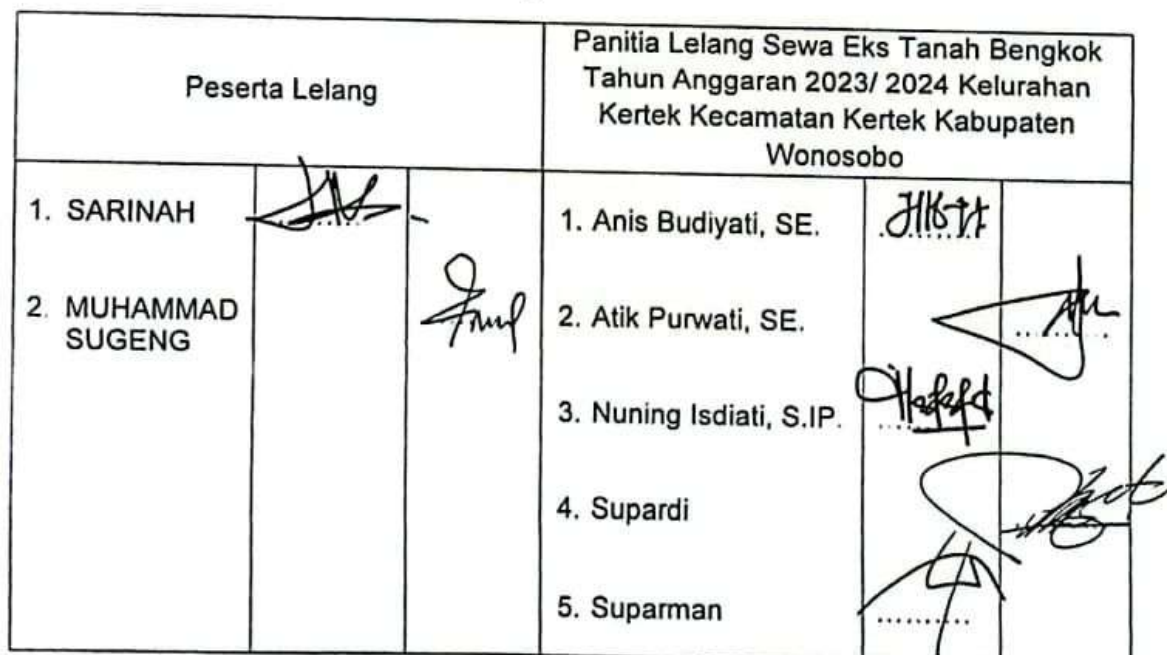 Peserta Lelang
Panitia Lelang Sewa Eks Tanah Bengkok
Tahun Anggaran 2023/ 2024 Kelurahan
Kertek Kecamatan Kertek Kabupaten
Wonosobo
1. SARINAH
2. MUHAMMAD
SUGENG
1. Anis Budiyati, SE.
2. Atik Purwati, SE.
3. Nuning Isdiati, S.IP.
4. Supardi
5. Suparman